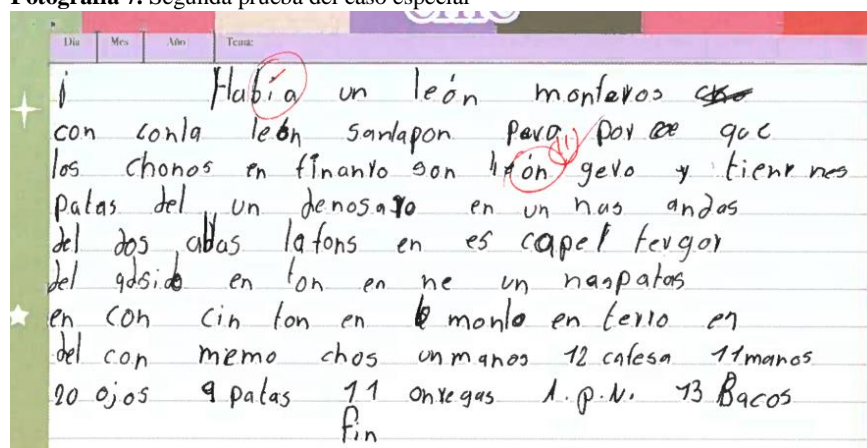 Fotografía 7. Segunda prueba del caso especial
Día Mes Año Tema:
Había un león montaros
con conla león sanlapon para por que
los chonos en finanyo son león gero y tienr nes
patas del un denosayo en un nas andas
del dos abdas lafons en es capel tergor
del en ton en ne un naspatas
en con cin ton en monlo en terro en
del con memo chos unmanos 12 cafesa 11manos
20 ojos 9 patas 11 onregas A.p.N. 13 Bacos
fin